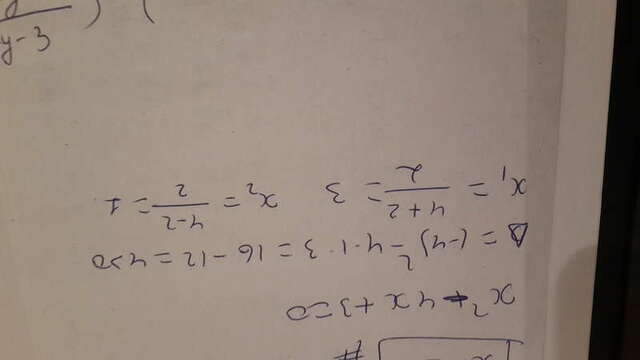 x² - 4x + 3 = 0
Δ = (-4)² - 4·1·3 = 16 - 12 = 4 > 0
x₁ = (4 + 2)/2 = 3    x₂ = (4 - 2)/2 = 1